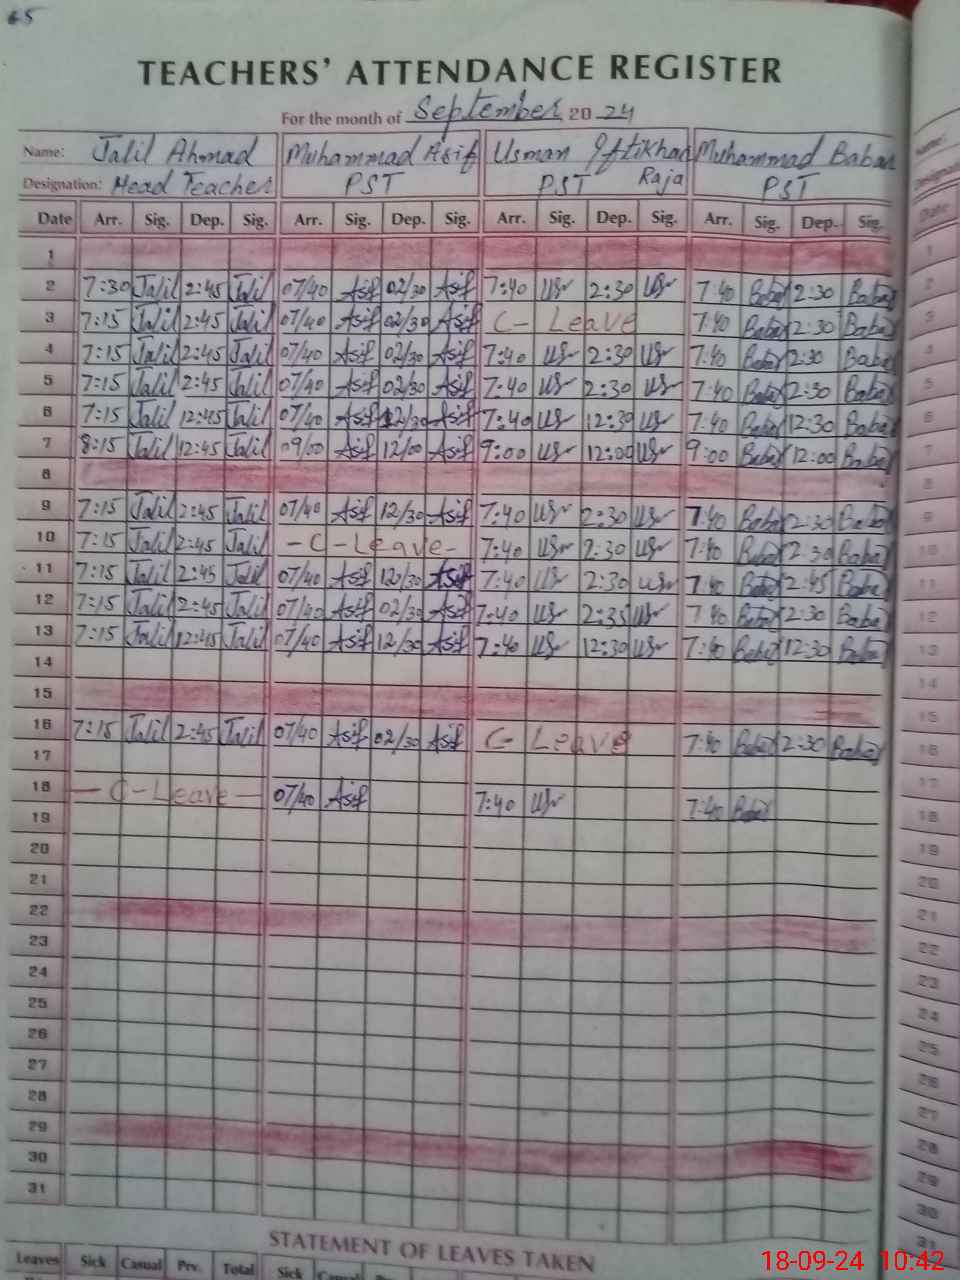 65
TEACHERS' ATTENDANCE REGISTER
For the month of September 2024
Name: Jalil Ahmad Muhammad Asif Usman Iftikhar Muhammad Babar
Designation: Head Teacher PST PST Raja PST
Date Arr. Sig. Dep. Sig. Arr. Sig. Dep. Sig. Arr. Sig. Dep. Sig. Arr. Sig. Dep. Sig.
1
2 7:30 Jalil 2:45 Jalil 07/40 Asif 02/30 Asif 7:40 Usr 2:30 Usr 7:40 Babar 2:30 Babar
3 7:15 Jalil 2:45 Jalil 07/40 Asif 02/30 Asif C- Leave 7:40 Babar 2:30 Babar
4 7:15 Jalil 2:45 Jalil 07/40 Asif 02/30 Asif 7:40 Usr 2:30 Usr 7:40 Babar 2:30 Babar
5 7:15 Jalil 2:45 Jalil 07/40 Asif 02/30 Asif 7:40 Usr 2:30 Usr 7:40 Babar 2:30 Babar
6 7:15 Jalil 12:45 Jalil 07/40 Asif 12/30 Asif 7:40 Usr 12:30 Usr 7:40 Babar 12:30 Babar
7 8:15 Jalil 12:45 Jalil 09/00 Asif 12/00 Asif 9:00 Usr 12:00 Usr 9:00 Babar 12:00 Babar
8
9 7:15 Jalil 2:45 Jalil 07/40 Asif 12/30 Asif 7:40 Usr 2:30 Usr 7:40 Babar 2:30 Babar
10 7:15 Jalil 2:45 Jalil - C - Leave - 7:40 Usr 2:30 Usr 7:40 Babar 2:30 Babar
11 7:15 Jalil 2:45 Jalil 07/40 Asif Asif 7:40 Usr 2:30 Usr 7:40 Babar 2:45 Babar
12 7:15 Jalil 2:45 Jalil 07/40 Asif 02/30 Asif 7:40 Usr 2:35 Usr 7:40 Babar 2:30 Babar
13 7:15 Jalil 12:45 Jalil 07/40 Asif 12/30 Asif 7:40 Usr 12:30 Usr 7:40 Babar 12:30 Babar
14
15
16 7:15 Jalil 2:45 Jalil 07/40 Asif 02/30 Asif C- Leave 7:40 Babar 2:30 Babar
17
18 - C - Leave - 07/40 Asif 7:40 Usr 7:40 Babar
19
20
21
22
23
24
25
26
27
28
29
30
31
STATEMENT OF LEAVES TAKEN
Leaves Sick Casual Prv. Total Sick Casual
18-09-24 10:42